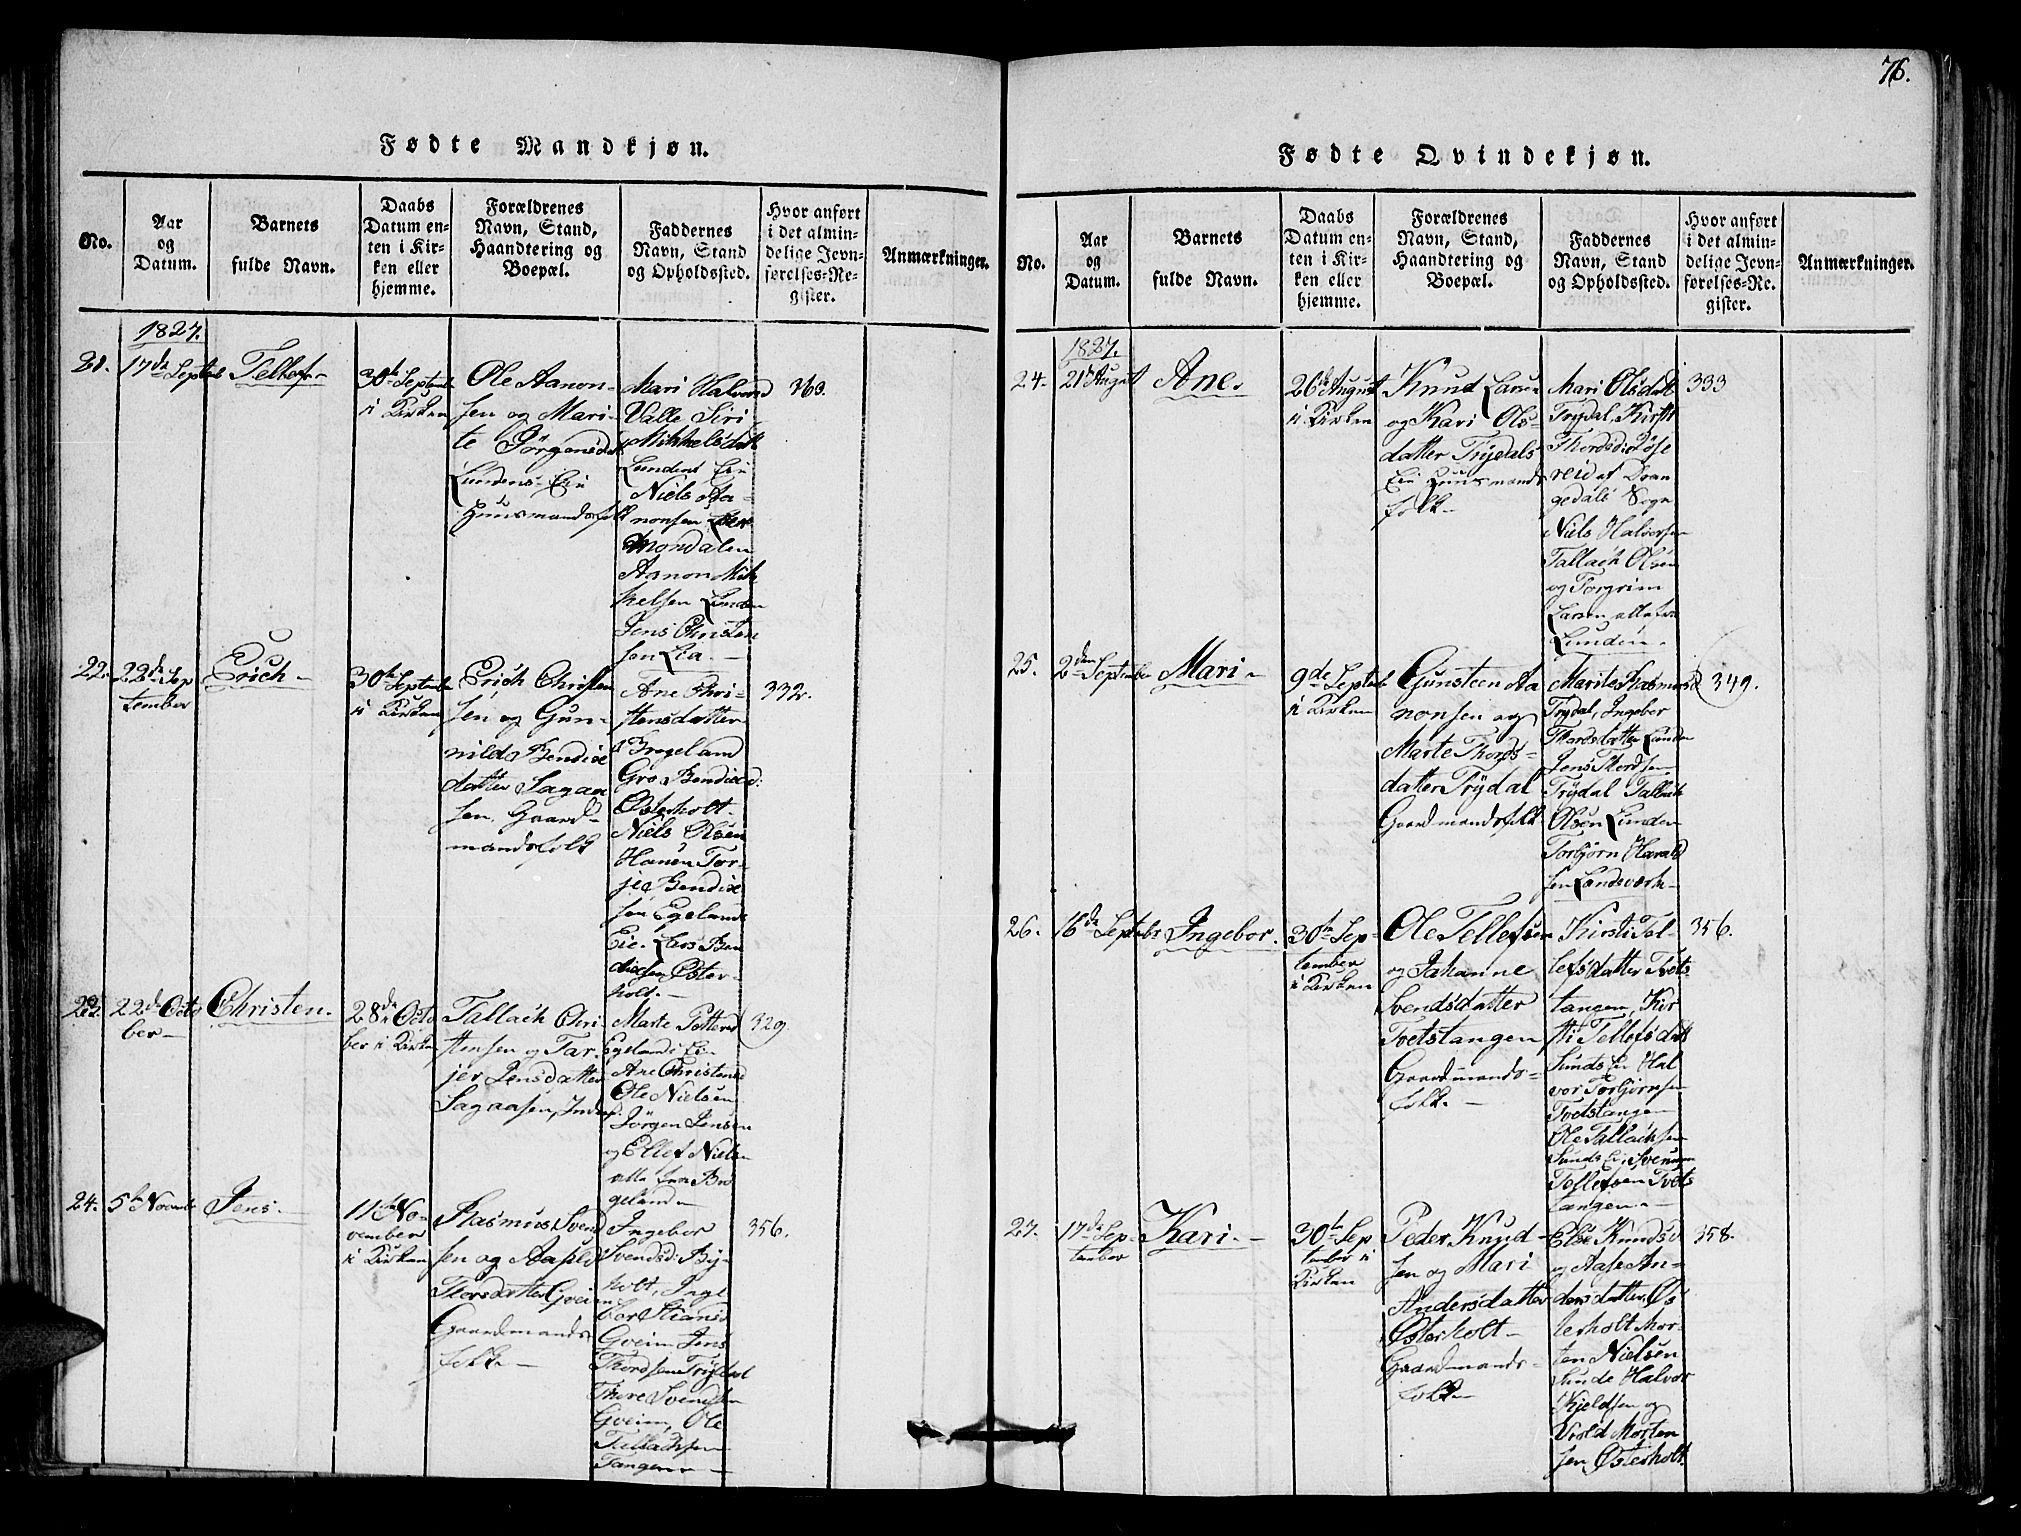 76.
Fødte Mandkjøn.
No.
Aar
og
Datum.
Barnets
fulde Navn.
Daabs
Datum en-
ten i Kir-
ken eller
hjemme.
Forældrenes
Navn, Stand,
Haandtering og
Boepæl.
Faddernes
Navn, Stand
og Opholdssted.
Hvor anført
i det almin-
delige Jevn-
førelses-Re-
gister.
Anmærkninger.
1827.
21.
17de Septemb
30te Septemb
i Kirken
Ole Aanon-
sen og Mari-
te Jörgensdatt
Lundens Eie
Huusmandsfolk
Mari Halvorsd
Valle Siri
Mikkelsdatt
Lundens Eie
Niels Aa-
nonsen
Aanon Mik-
kelsen Lunden
Jens Christen
sen Lia.
363.
22.
22de Sep
tember
Erich
30te September
i Kirken
Erich Christen
sen og Gun-
nild Bendixs
datter Sagaa
sen, Gaard-
mandsfolk
Ane Chri-
stensdatter
Bregeland
Gro Bendixd:
Österholt
Niels Olsen
Hauen Tor-
jer Bendix
sen Egelands
Eie. Lars Ben
dixsen Öster-
holt.
332.
22de Octo
ber
Christen.
28de Octo
ber i Kirken
Tallach Chri-
stensen og Tar-
jer Jensdatter
Sagaasen, Inders
Marte Pettersd
Egelands Eie
Ane Christensd
Ole Nielsen
Jörgen Jensen
og Ellef Niels
alle fra Bre
geland
329.
24.
5te Novemb
Jens.
11te No-
vember
i Kirken
Rasmus Svend
sen og Aaste
Thorsdatter Gveim
Gaardmands
folk
Ingebor
Svendsd: By-
holt, Inge
bor Stiansd
Gveim Jens
Thordsen Trydal
Thore Svendsen
Gveim, Ole
Tallachsen
Tangen
356.
Fødte Qvindekjøn.
No.
Aar
og
Datum.
Barnets
fulde Navn.
Daabs
Datum en-
ten i Kir-
ken eller
hjemme.
Forældrenes
Navn, Stand,
Haandtering og
Boepæl.
Faddernes
Navn, Stand
og Opholdssted.
Hvor anført
i det almin-
delige Jevn-
førelses-Re-
gister.
Anmærkninger.
1827.
24.
21de August
Ane.
26de August
i Kirken
Knud Larsen
og Kari Ols-
datter Trydals
Eie Huusmands
folk
Mari Olsdatt
Trydal, Kirsti
Thordsd:
reid af Dran
gedals Sogn
Niels Halvorsen
Tallach Olsen
og Torgrim
Larsen alle fra
Lunden.
333
25.
2den September
Mari
9de Septemb
i Kirken
Gunsteen Aa
nonsen og
Marte Thords-
datter Trydal
Gaardmandsfolk
Marite Rasmusd
Trydal, Ingebor
Thordsdatter Lunden
Jens Thordsen
Trydal Tallach
Olsen Lunden
Torbjörn Harald
sen Landsverk
349.
26.
16de Septembr
Ingebor.
30te Sep-
tember
i Kirken
Ole Tellefsen
og Johanne
Svendsdatter
Tvetstangen
Gaardmands-
folk.
Kirsti Tel-
lefsdatter Tvets-
tangen, Kir
sti Tellefsdatt
Sunds Eie Hal
vor Torbjörnsen
Tvetstangen
Ole Tallachsen
Sunds Eie, Svenum
Tellefsen Tvets
tangen
356.
27.
17de Sep-
tember
Kari.
30te Sep
tember i
Kirken
Peder Knud-
sen og Mari
Andersdatter
Österholt
Gaardmands-
folk
Else Knudsd
og Aase An-
dersdatter, Ös
terholt Mor-
ten Nielsen
Sunde Halvor
Kjeldsen og
Vrold Morten
sen Österholt.
358.